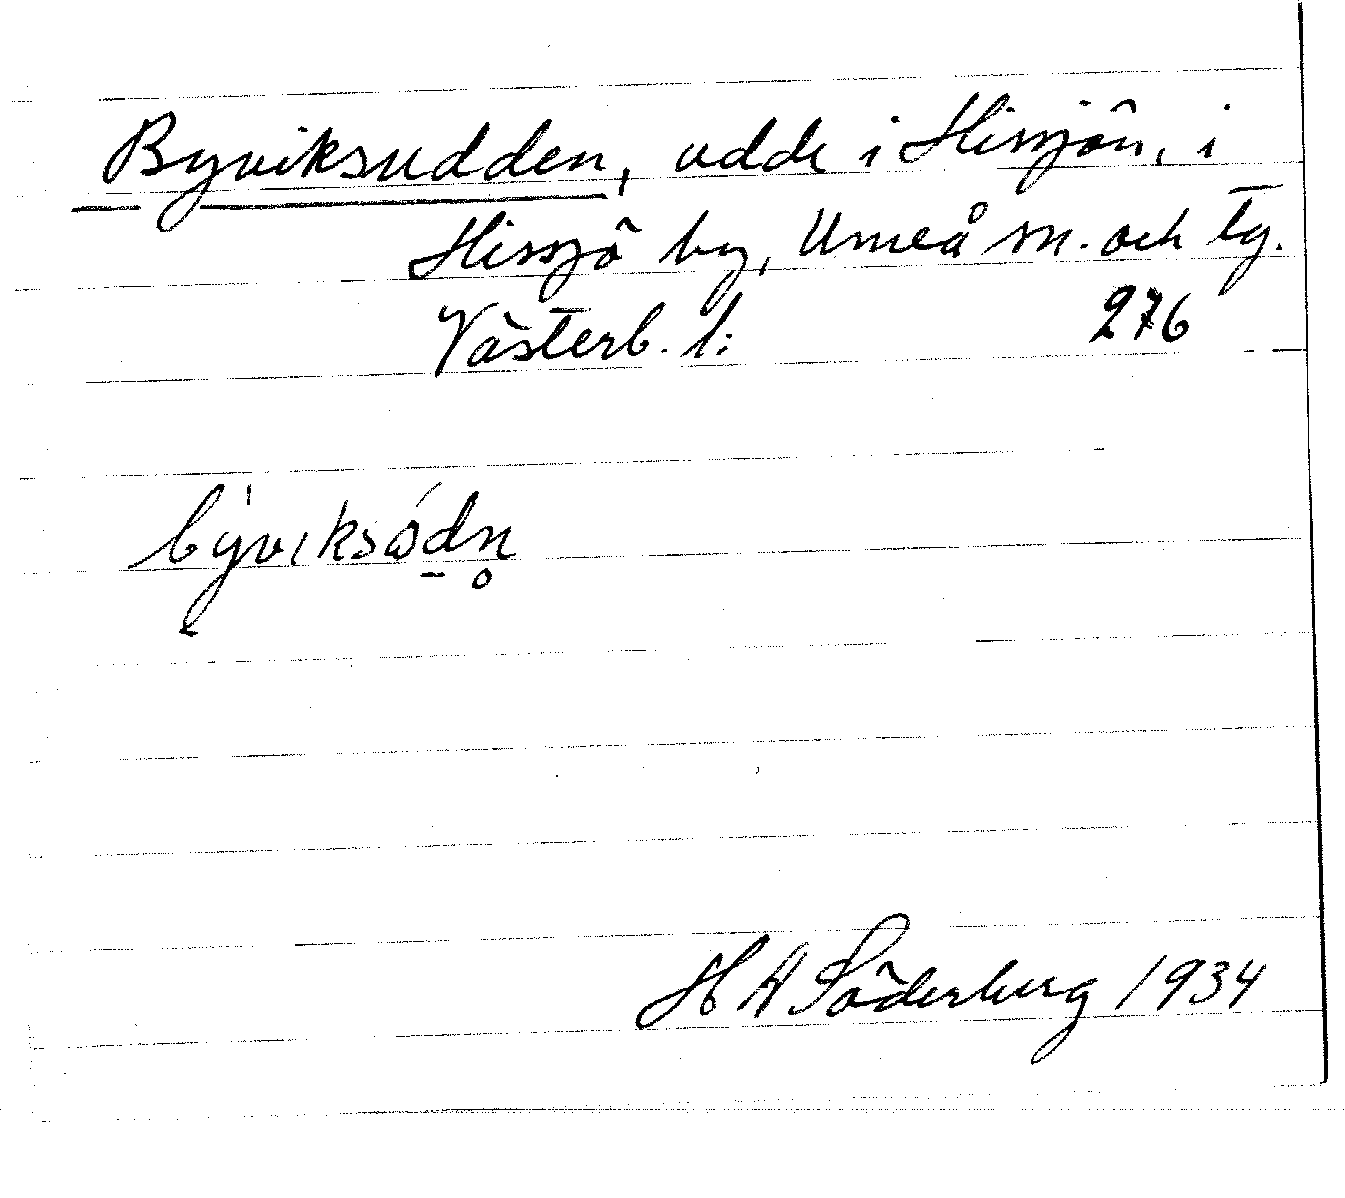 Byviksudden, udde i Hissjön, i
Hissjö by, Umeå sn. och tg.
Västerb. l: 276
býviksǿdn̥
H A Söderberg 1934